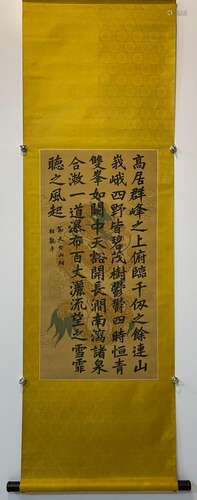 高居群峰之上俯臨千仞之餘連山
峩峨四野皆碧茂樹鬱鬱四時恒青
雙峯如闕中天豁開長澗南瀉諸泉
合漱一道瀑布百丈灑流望之雪霏
聽之風起